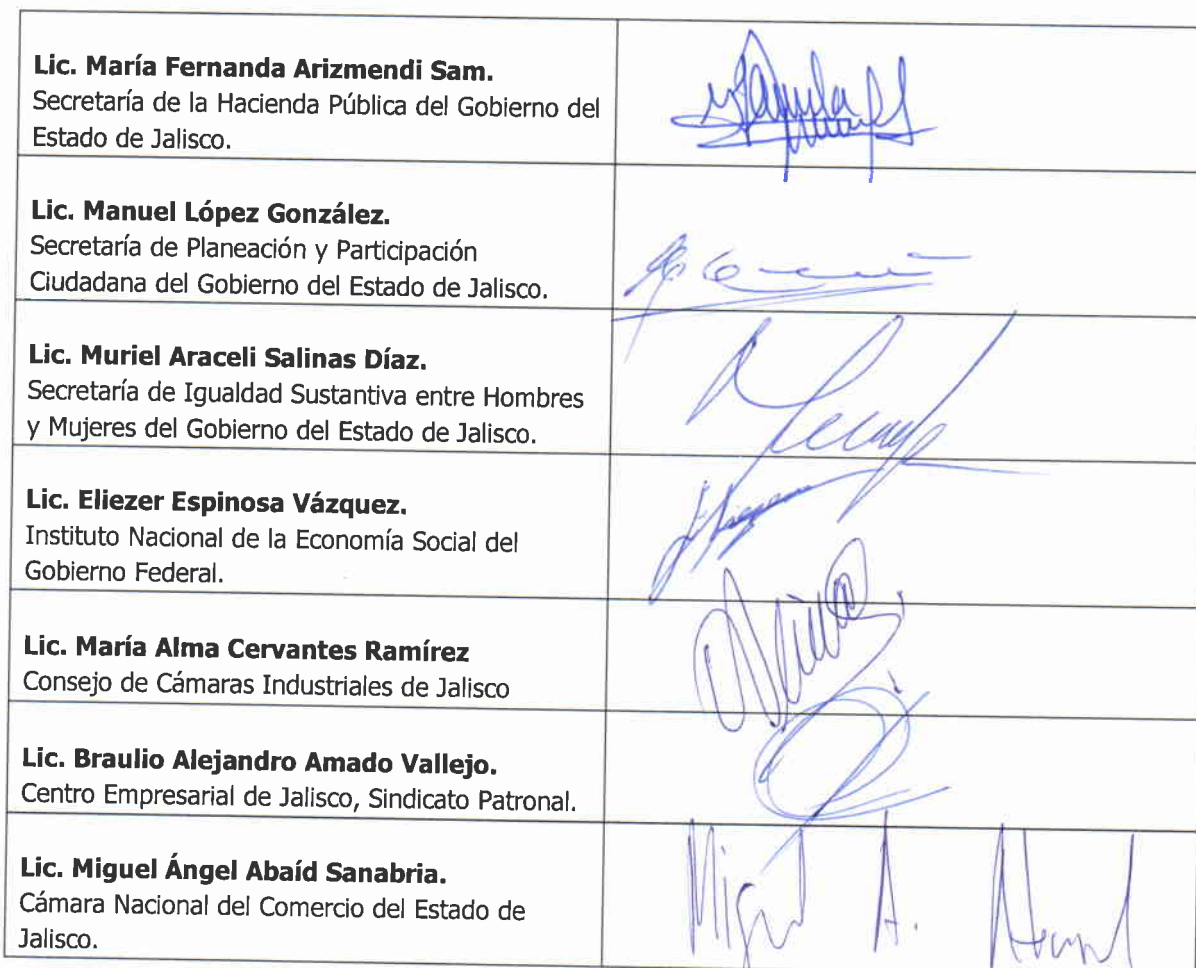 Lic. María Fernanda Arizmendi Sam.
Secretaría de la Hacienda Pública del Gobierno del
Estado de Jalisco.
Lic. Manuel López González.
Secretaría de Planeación y Participación
Ciudadana del Gobierno del Estado de Jalisco.
Lic. Muriel Araceli Salinas Díaz.
Secretaría de Igualdad Sustantiva entre Hombres
y Mujeres del Gobierno del Estado de Jalisco.
Lic. Eliezer Espinosa Vázquez.
Instituto Nacional de la Economía Social del
Gobierno Federal.
Lic. María Alma Cervantes Ramírez
Consejo de Cámaras Industriales de Jalisco
Lic. Braulio Alejandro Amado Vallejo.
Centro Empresarial de Jalisco, Sindicato Patronal.
Lic. Miguel Ángel Abaíd Sanabria.
Cámara Nacional del Comercio del Estado de
Jalisco.
Miguel A.